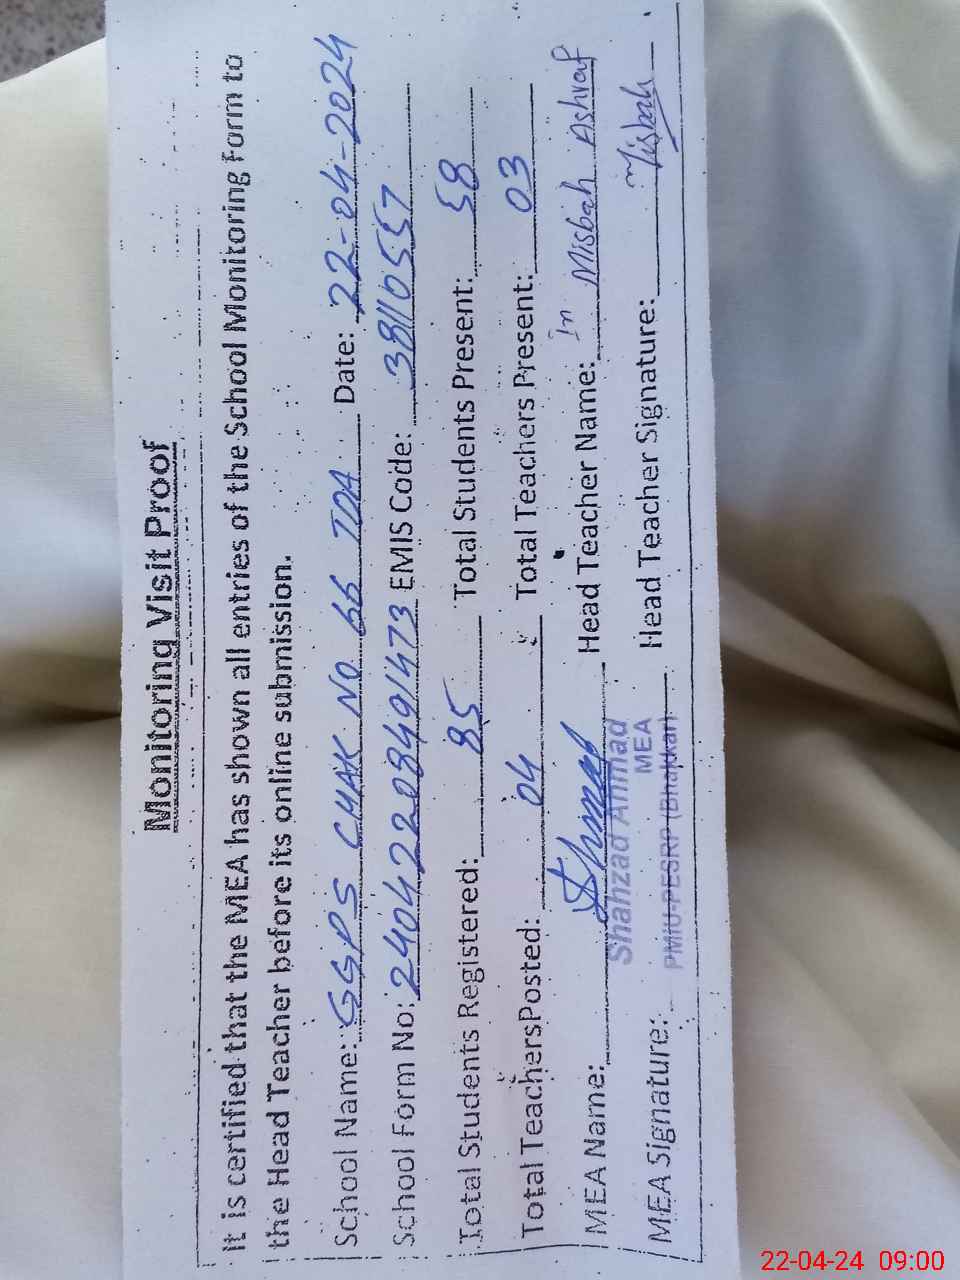 Monitoring Visit Proof
It is certified that the MEA has shown all entries of the School Monitoring Form to
the Head Teacher before its online submission.
School Name: GGPS CHAK NO 66 TDA Date: 22-04-2024
School Form No: 24042208491473 EMIS Code: 38110557
Total Students Registered: 85 Total Students Present: 58
Total TeachersPosted: 04 Total Teachers Present: 03
MEA Name: Head Teacher Name: In Misbah Ashraf
Shahzad Ahmad
MEA
PMIU-PESRP (Bhakkar)
MEA Signature: Head Teacher Signature: Misbah
22-04-24 09:00